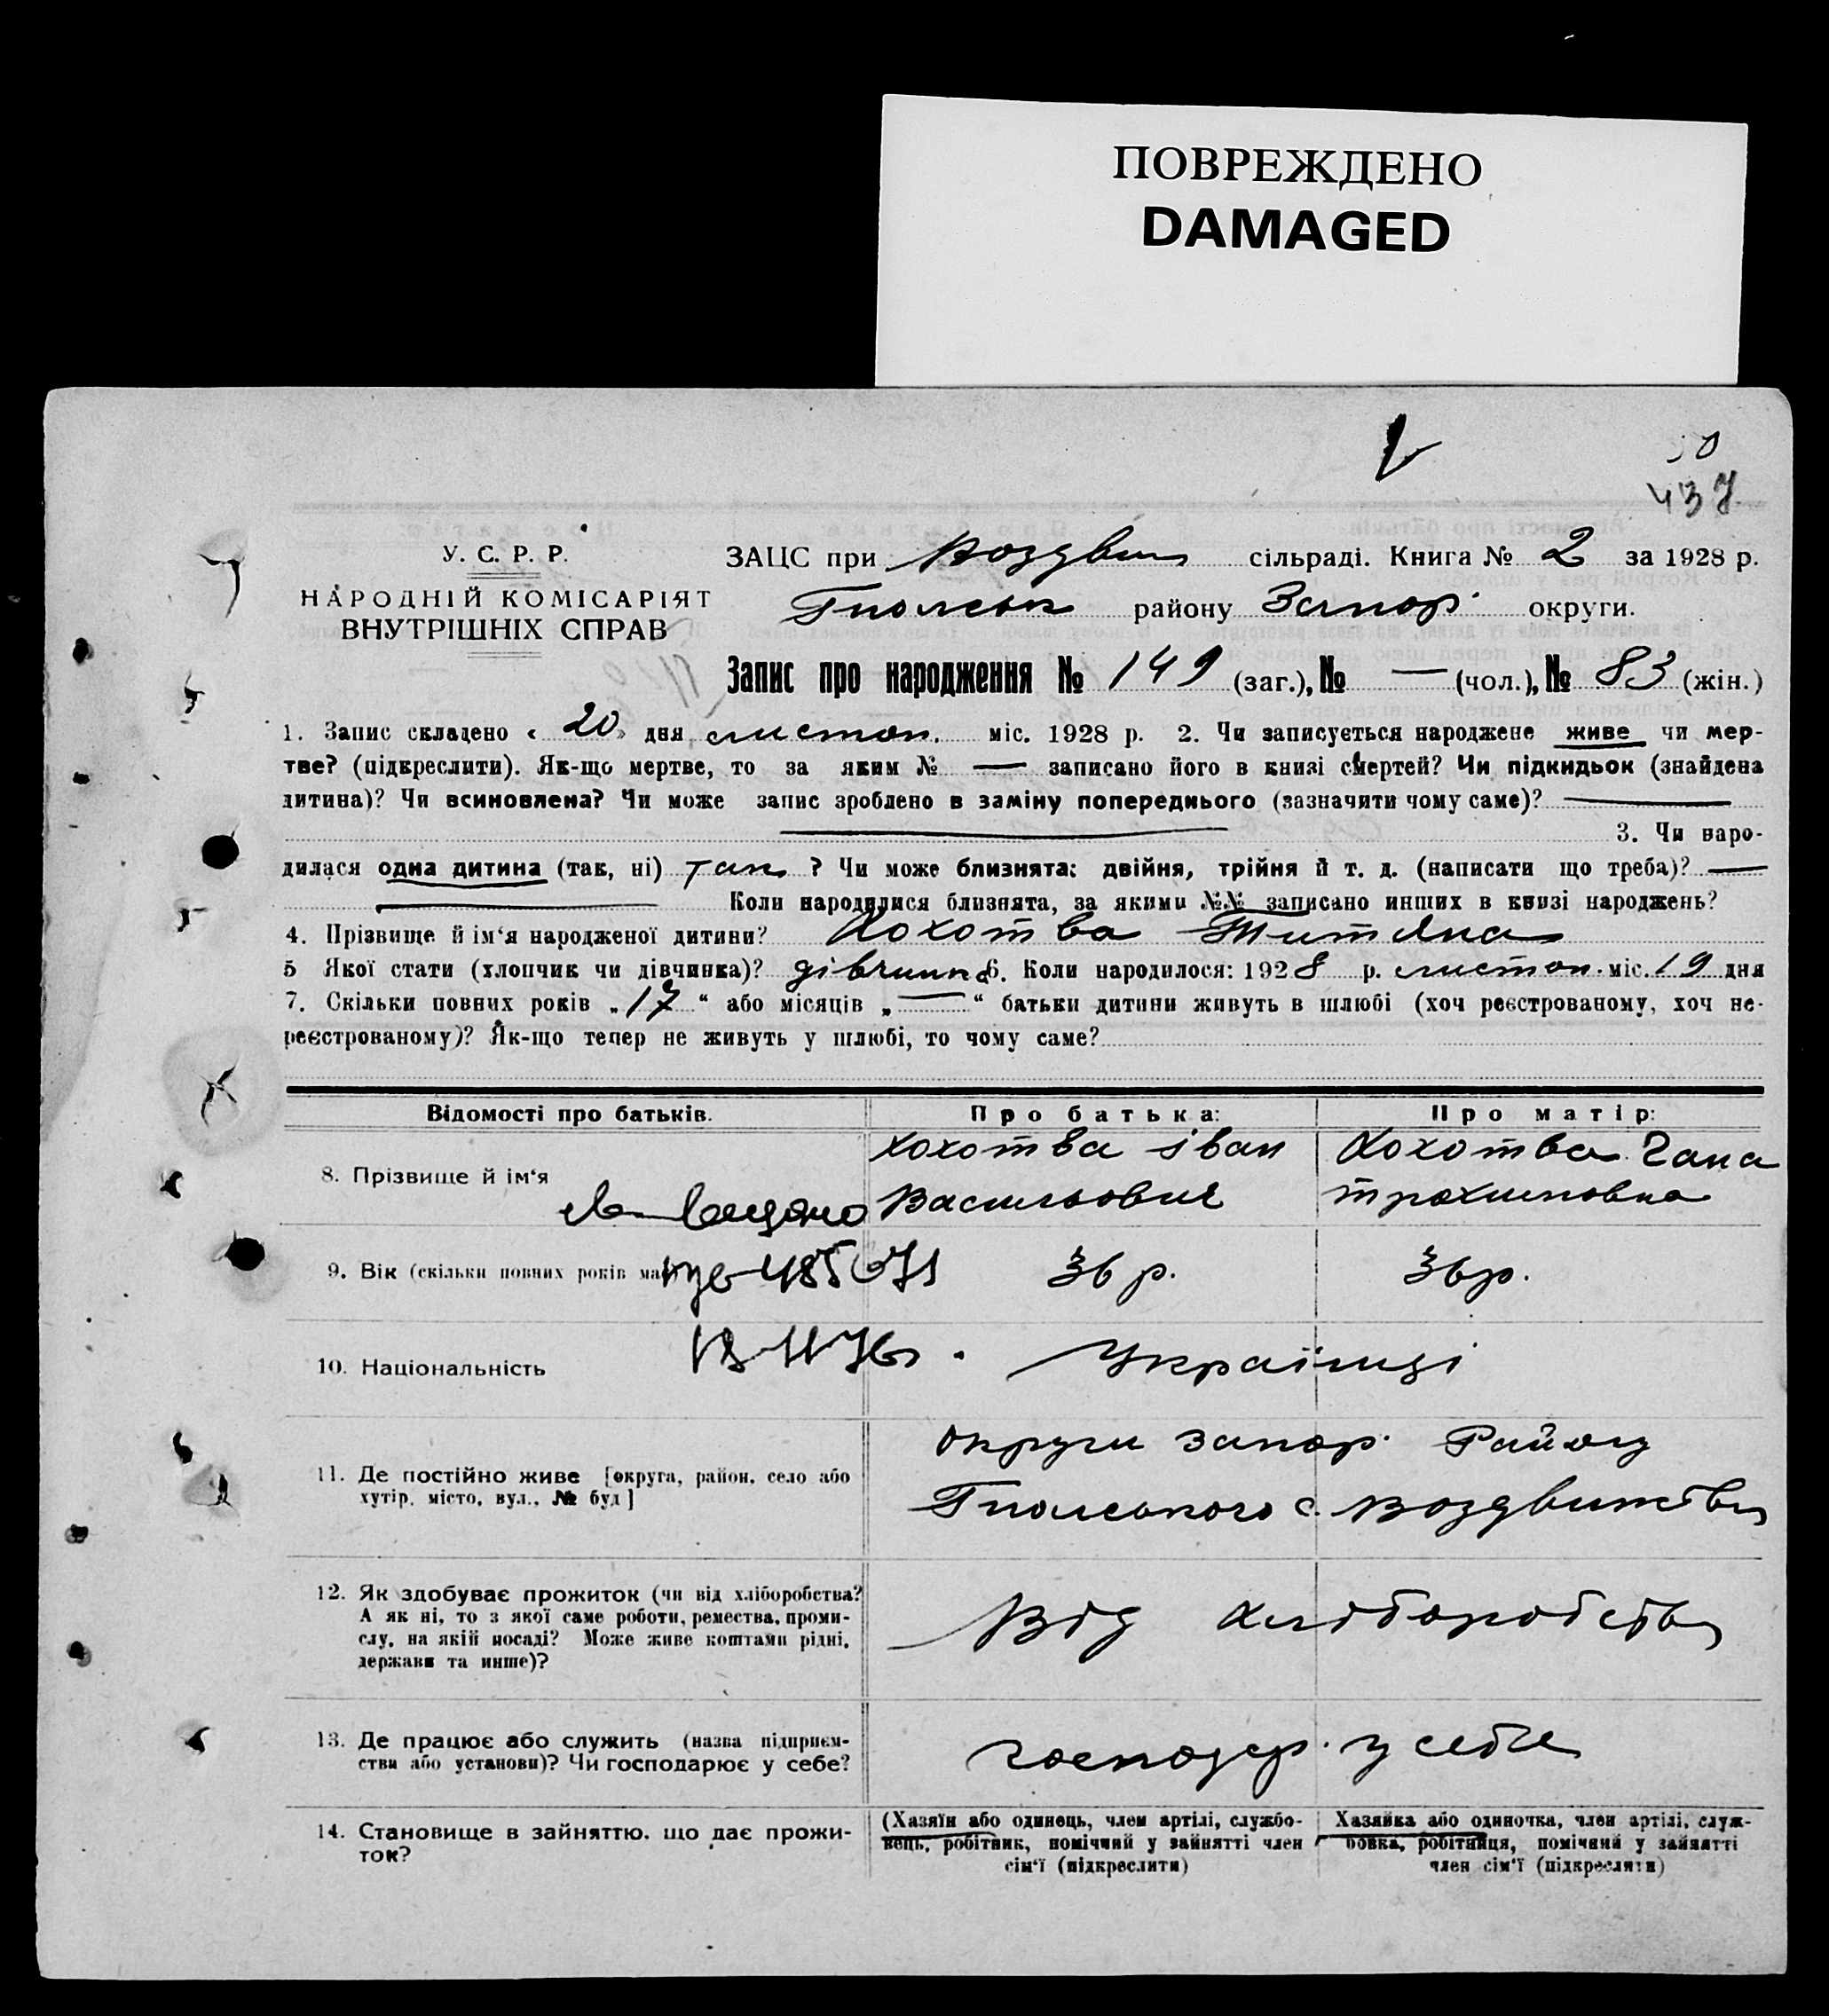 ПОВРЕЖДЕНО
DAMAGED
437
У. С. Р. Р.
НАРОДНІЙ КОМІСАРІЯТ
ВНУТРІШНІХ СПРАВ
ЗАЦС при Воздвиж сільраді. Книга № 2 за 1928 р.
Гполськ району Запор. округи.
Запис про народження № 149 (заг.), № — (чол.), № 83 (жін.)
1. Запис складено « 20 » дня листоп. міс. 1928 р. 2. Чи записується народжене живе чи мер-
тве? (підкреслити). Як-що мертве, то за яким № — записано його в книзі смертей? Чи підкидьок (знайдена
дитина)? Чи всиновлена? Чи може запис зроблено в заміну попереднього (зазначити чому саме)? —
— 3. Чи наро-
дилася одна дитина (так, ні) так ? Чи може близнята: двійня, трійня й т. д. (написати що треба)? —
— Коли народилися близнята, за якими №№ записано инших в книзі народжень?
4. Прізвище й ім‘я народженої дитини? Хохотва Титяна
5 Якої стати (хлопчик чи дівчинка)? дівчинка 6. Коли народилося: 1928 р. листоп. міс. 19 дня
7. Скільки повних років „ 17 “ або місяців „ — “ батьки дитини живуть в шлюбі (хоч реєстрованому, хоч не-
реєстрованому)? Як-що тепер не живуть у шлюбі, то чому саме?
Відомості про батьків. Про батька: Про матір:
8. Прізвище й ім‘я Хохотва Іван Хохотва Гана
Васильович трохимовна
9. Вік (скільки повних років має) 36 р. 36 р.
10. Національність Українці
11. Де постійно живе [округа, район, село або
хутір, місто, вул., № буд]
округи Запор. Району
Гполського с. Воздвижівки
12. Як здобуває прожиток (чи від хліборобства?
А як ні, то з якої саме роботи, ремества, проми-
слу, на якій посаді? Може живе коштами рідні,
держави та инше)?
Від хліборобства
13. Де працює або служить (назва підприєм-
ства або установи)? Чи господарює у себе?
господар. у себе
14. Становище в зайняттю, що дає прожи-
ток?
(Хазяїн або одинець, член артілі, службо-
вець, робітник, помічний у зайнятті член
сім‘ї (підкреслити)
Хазяйка або одиночка, член артілі, служ-
бовка, робітниця, помічний у зайнятті
член сім‘ї (підкреслити)